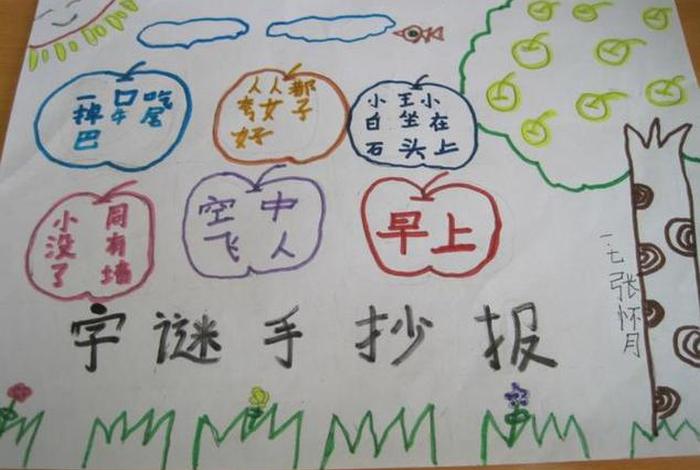 一口吃
掉牛尾
巴
人人都
夸女子
好
小王小
白坐在
石头上
小没了
周有墙
空中
飞人
早上
一.七张怀月
字谜手抄报